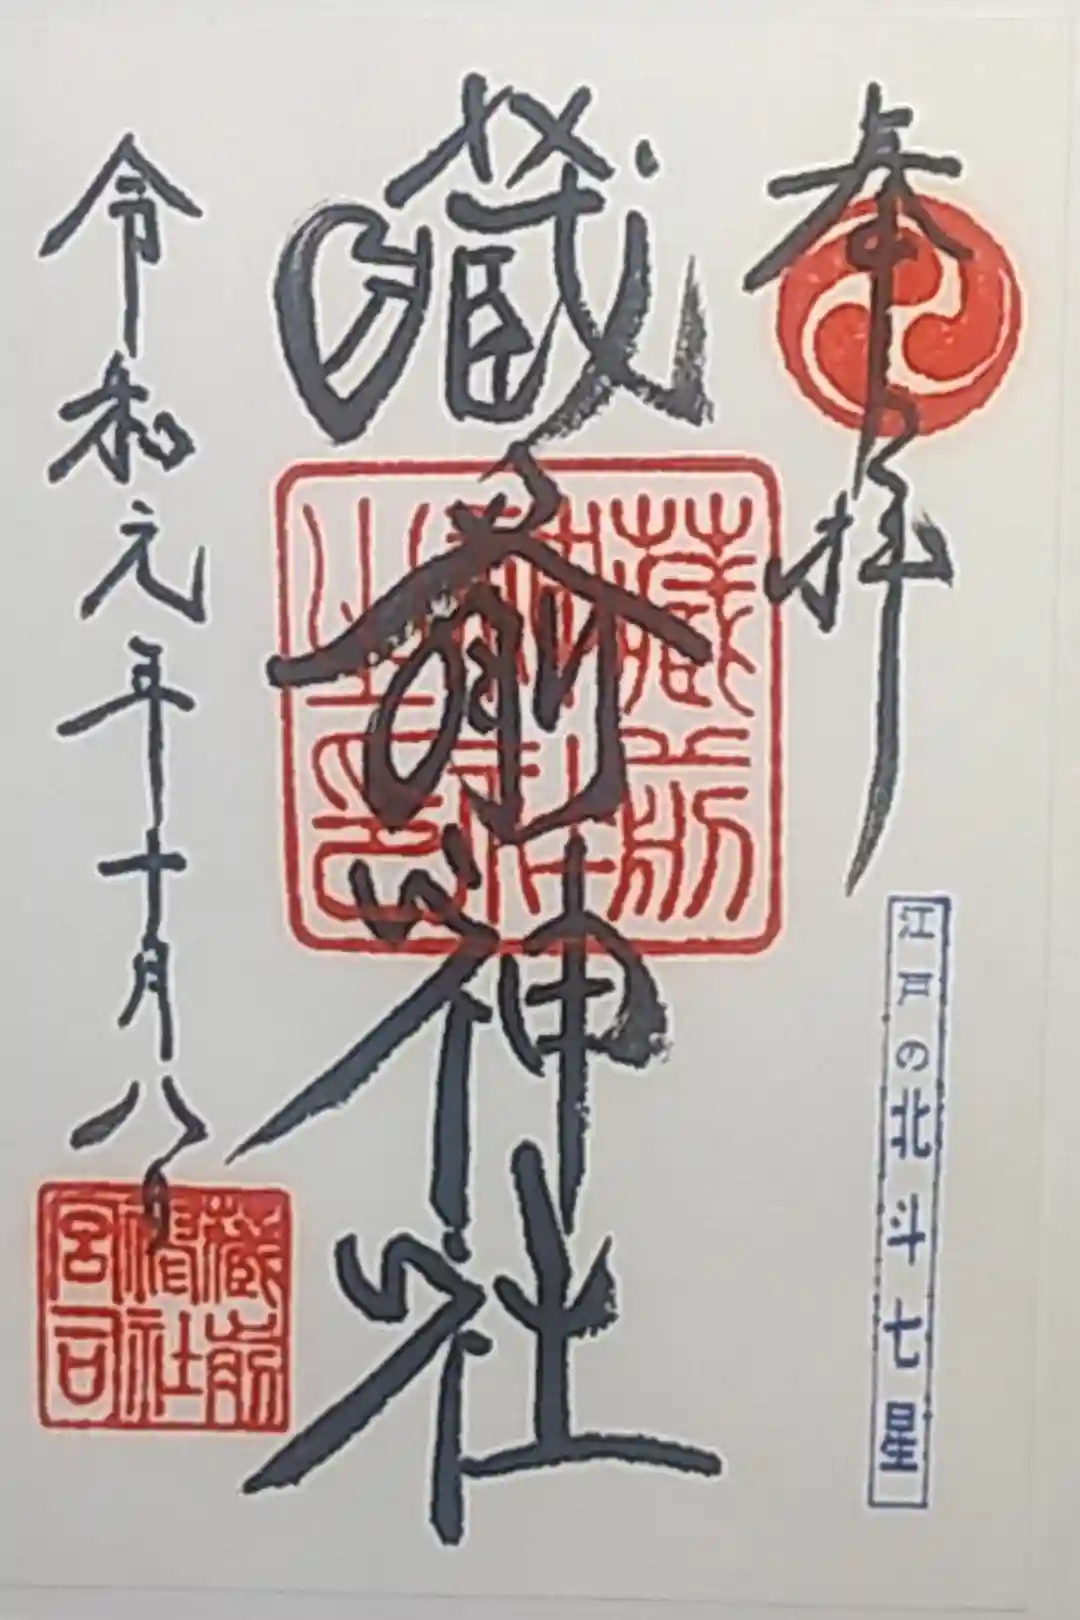 奉拝
江戸の北斗七星
蔵前神社
蔵前神社之印
令和元年十月八日
蔵前神社宮司